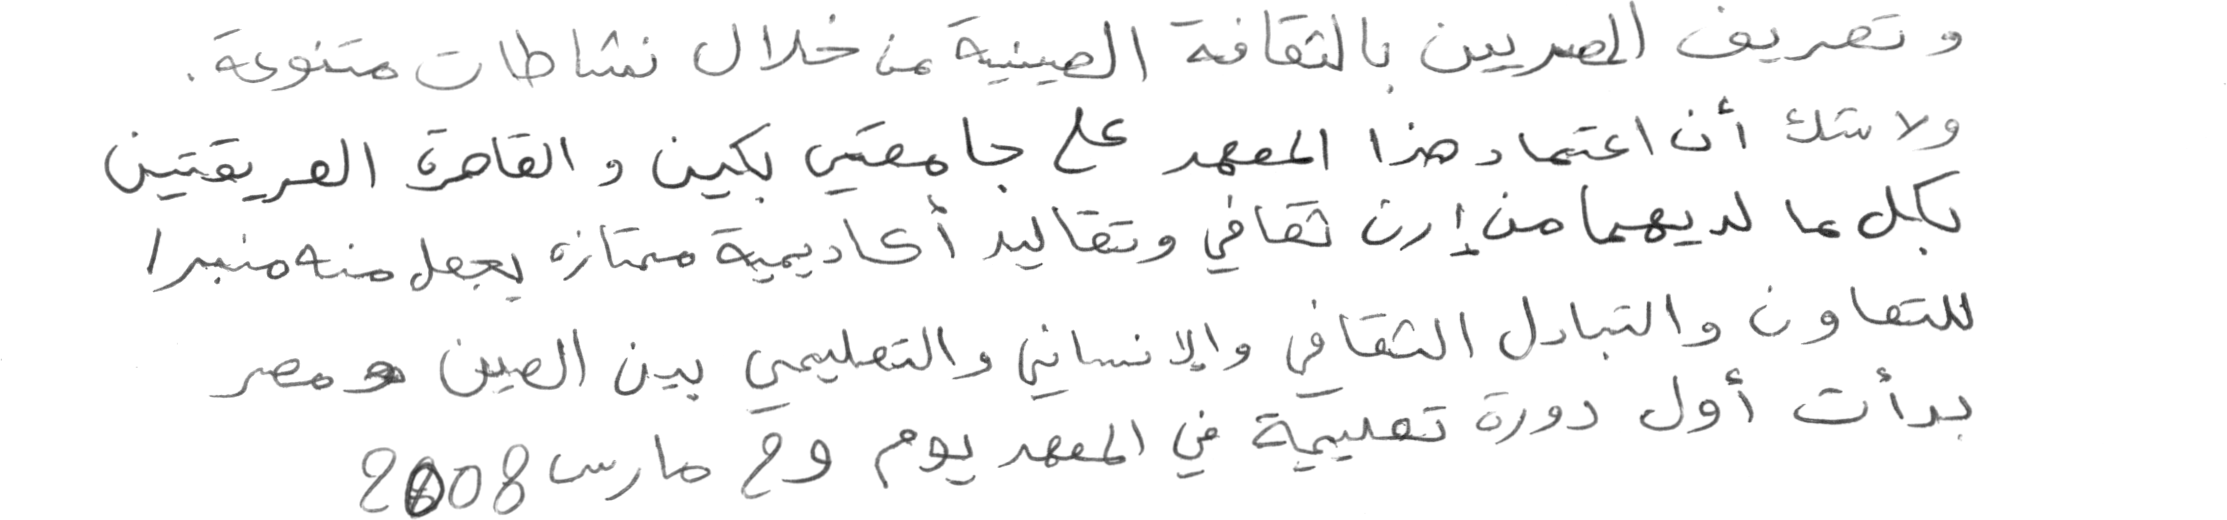 وتعريف المصريين بالثقافة الصينية من خلال نشاطات متنوعة.
ولا شك أن اعتماد هذا المعهد على جامعتي بكين والقاهرة العريقتين
بكل ما لديهما من إرث ثقافي وتقاليد أكاديمية ممتازه يجعل منه منبرا
للتعاون والتبادل الثقافي والإنساني والتعليمي بين الصين ومصر
بدأت أول دورة تعليمية في المعهد يوم مارس 2008